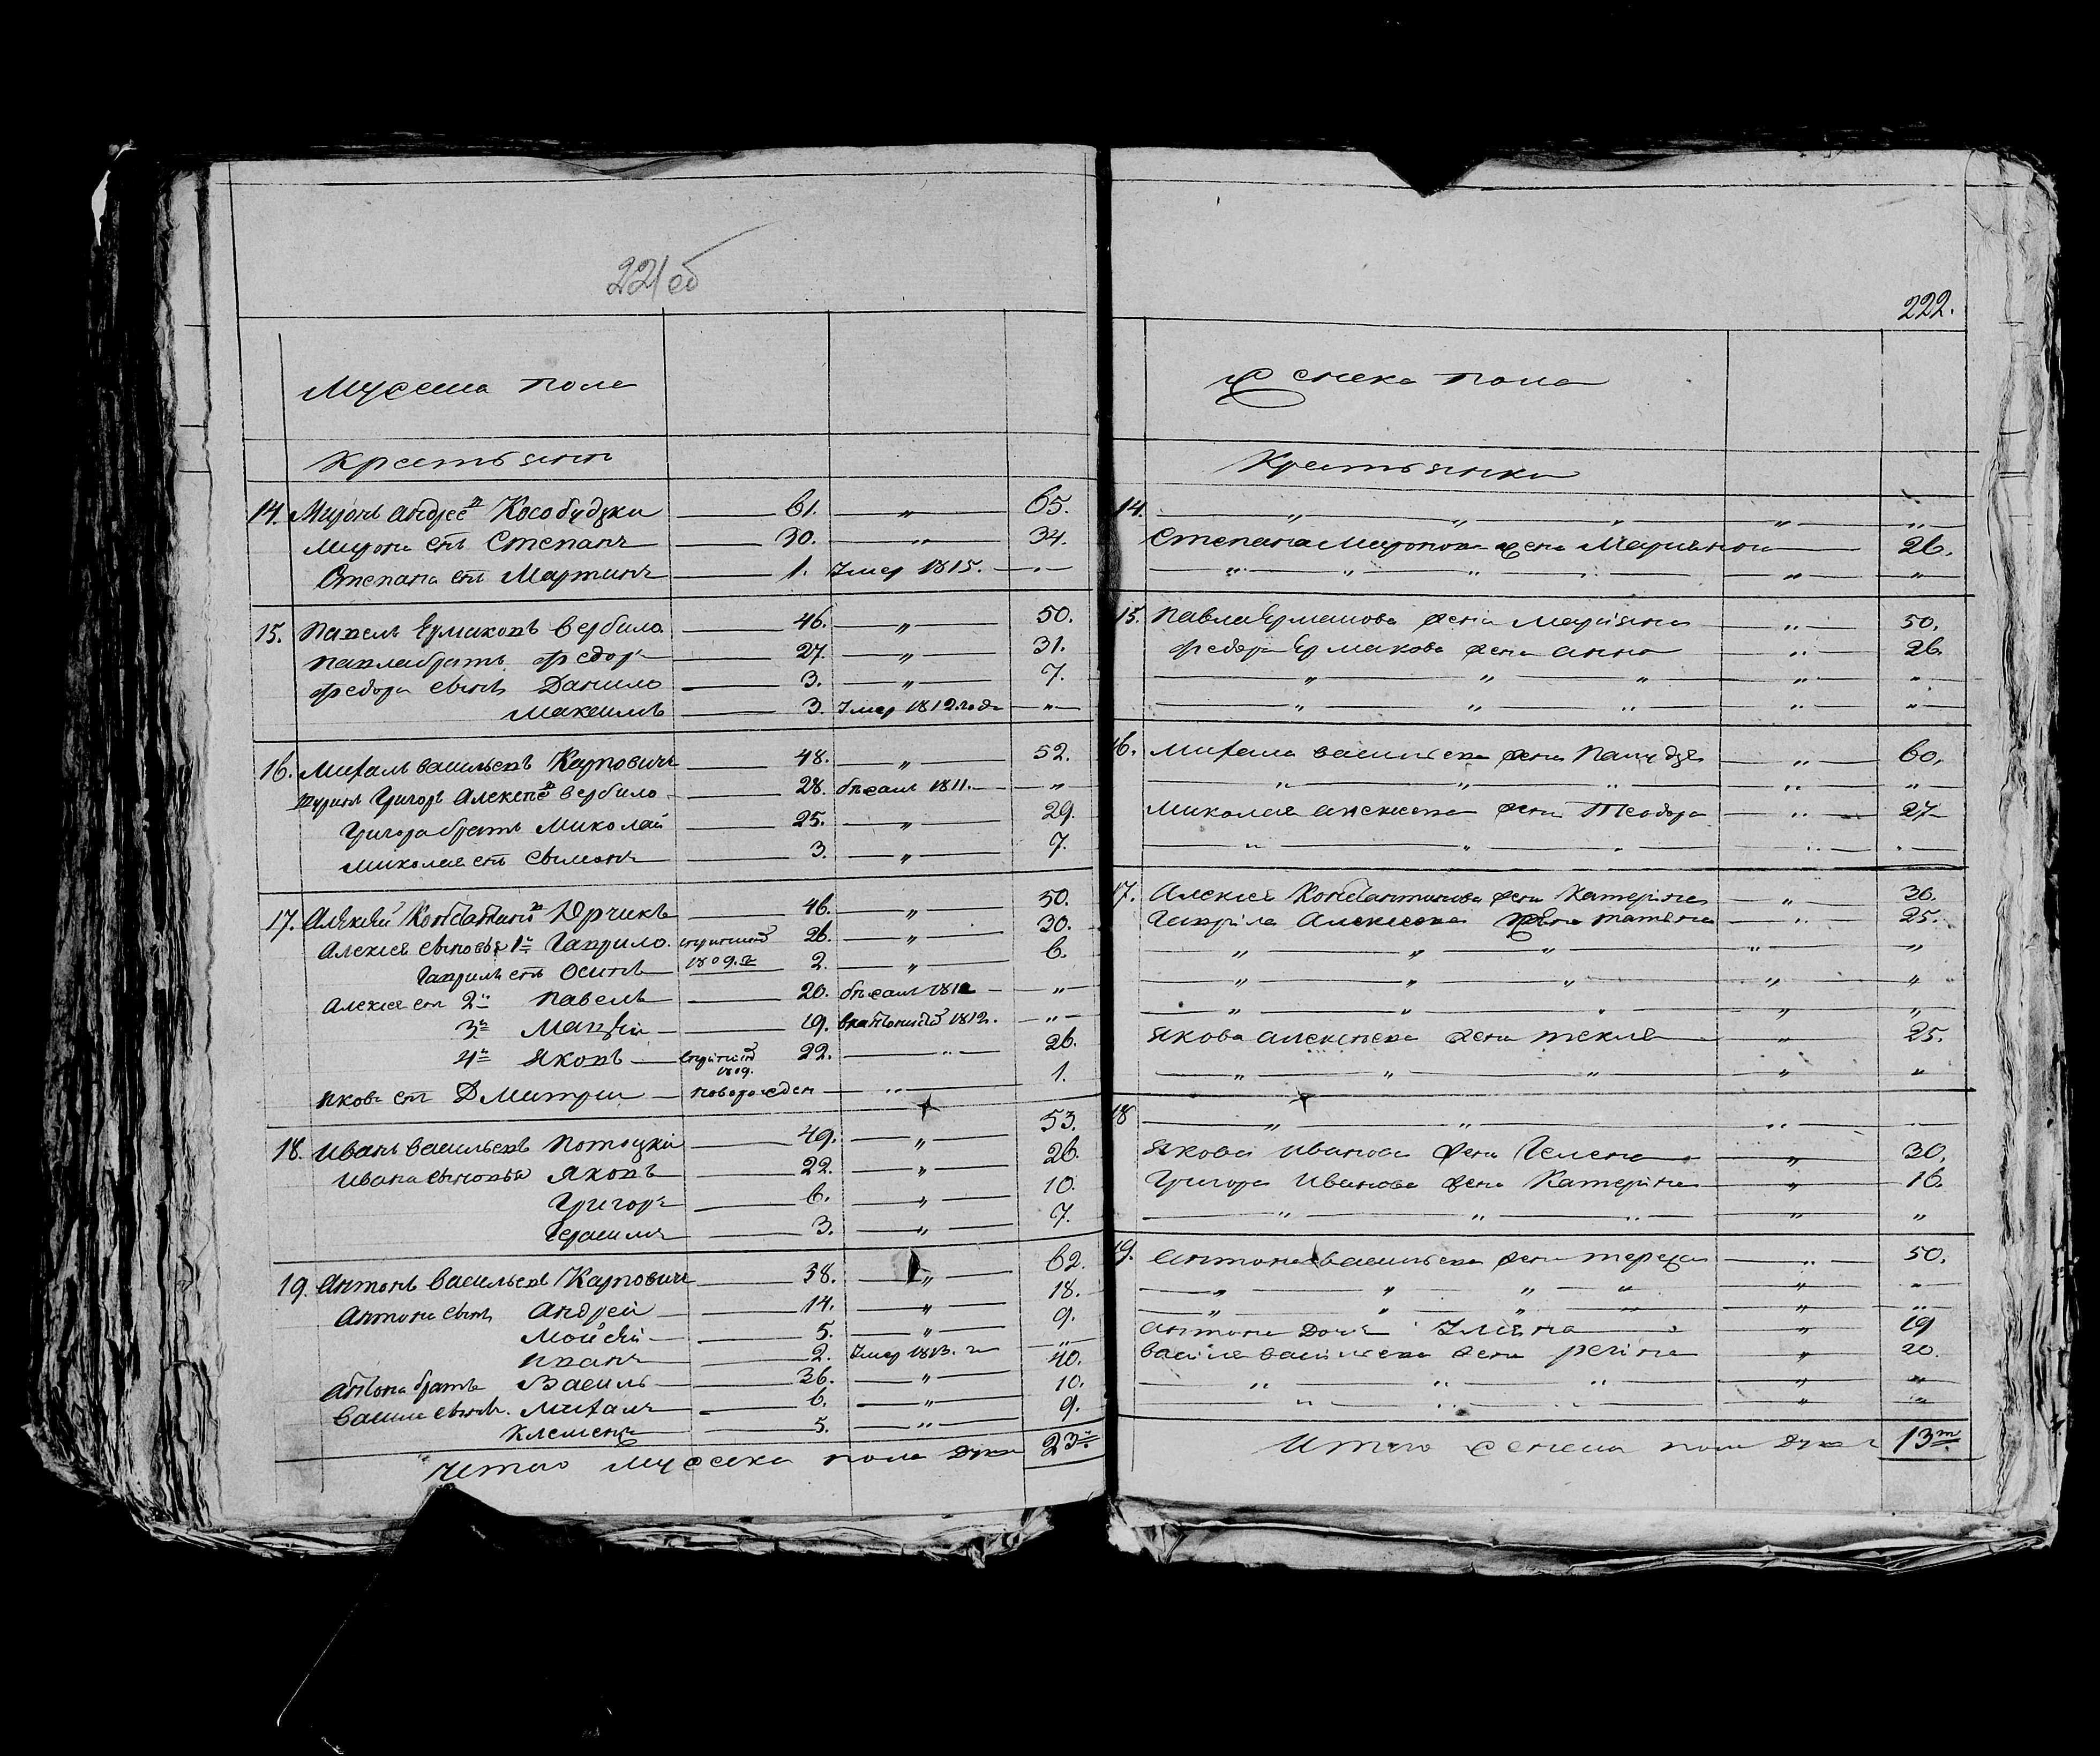 221 об
Мужеска пола
Крестьяне
14. Миронъ Андреевъ Кособудзки 61. „ 65.
Мирона снъ Степанъ 30. „ 34.
Степана снъ Мартинъ 1. Умер 1815. „
15. Павелъ Ермаковъ Вербило 46. „ 50.
Павла братъ Федоръ 27. „ 31.
Федора сынъ Данило 3. „ 7.
Максимъ 3. Умер 1812 года „
16. Михалъ Васильевъ Карповичъ 48. „ 52.
Григоръ Алексеевъ Вербило 28. бежал 1811. „
Григора братъ Миколай 25. „ 29.
Миколая снъ Сымонъ 3. „ 7.
17. Алексей Константиновъ Юрчикъ 46. „ 50.
Алексея сыновья 1й Гаврило 26. „ 30.
1809. г.
Гаврилы снъ Осипъ 2. „ 6.
Алексея снъ 2й Павелъ 20. бежал 1812 „
3й 19. 1812. „
4й Яковъ 22. „ 26.
1809.
Якова снъ Дмитри новорожден „ 1.
18. Иванъ Васильевъ Потоцки 49. „ 53.
Ивана сыновья Яковъ 22. „ 26.
Григоръ 6. „ 10.
Герасимъ 3. „ 7.
19. Антонъ Васильевъ Карповичъ 58. „ 62.
Антона сынъ Андрей 14. „ 18.
Мойсей 5. „ 9.
Иванъ 2. Умер 1813. г. „
Антона братъ Василь 36. „ 40.
Василя сынъ Михалъ 6. „ 10.
Клеменъ 5. „ 9.
Итого мужеска пола душъ 23.
222.
Женска пола
Крестьянки
14. „ „ „ „ „
Степана Миронова жена Марианна 26.
„ „ „ „ „ „
15. Павла Ермакова жена Марьяна „ 50.
Федора Ермакова жена Анна „ 26.
„ „ „ „ „
„ „ „ „ „
16. Михала Васильева жена „ 60.
„ „ „ „ „
Миколая Алексеева жена Теодора „ 27
„ „ „ „ „
17. Алексея Константинова жена Катерина „ 36.
Гаврила Алексеева жена Татяна „ 25.
„ „ „ „ „
„ „ „ „ „
„ „ „ „ „
Якова Алексеева жена Текля „ 25.
„ „ „ „ „
18 „ „ „ „
Якова Иванова жена Гелена „ 30.
Григора Иванова жена Катерина „ 16.
„ „ „ „ „
19. Антона Васильева жена Тереза „ 50.
„ „ „ „ „ „
„ „ „ „ „ „
Антона дочь Ульяна „ 19
Василя Васильева жена Регина „ 20.
„ „ „ „ „
„ „ „ „ „
Итого женска пола душъ 13